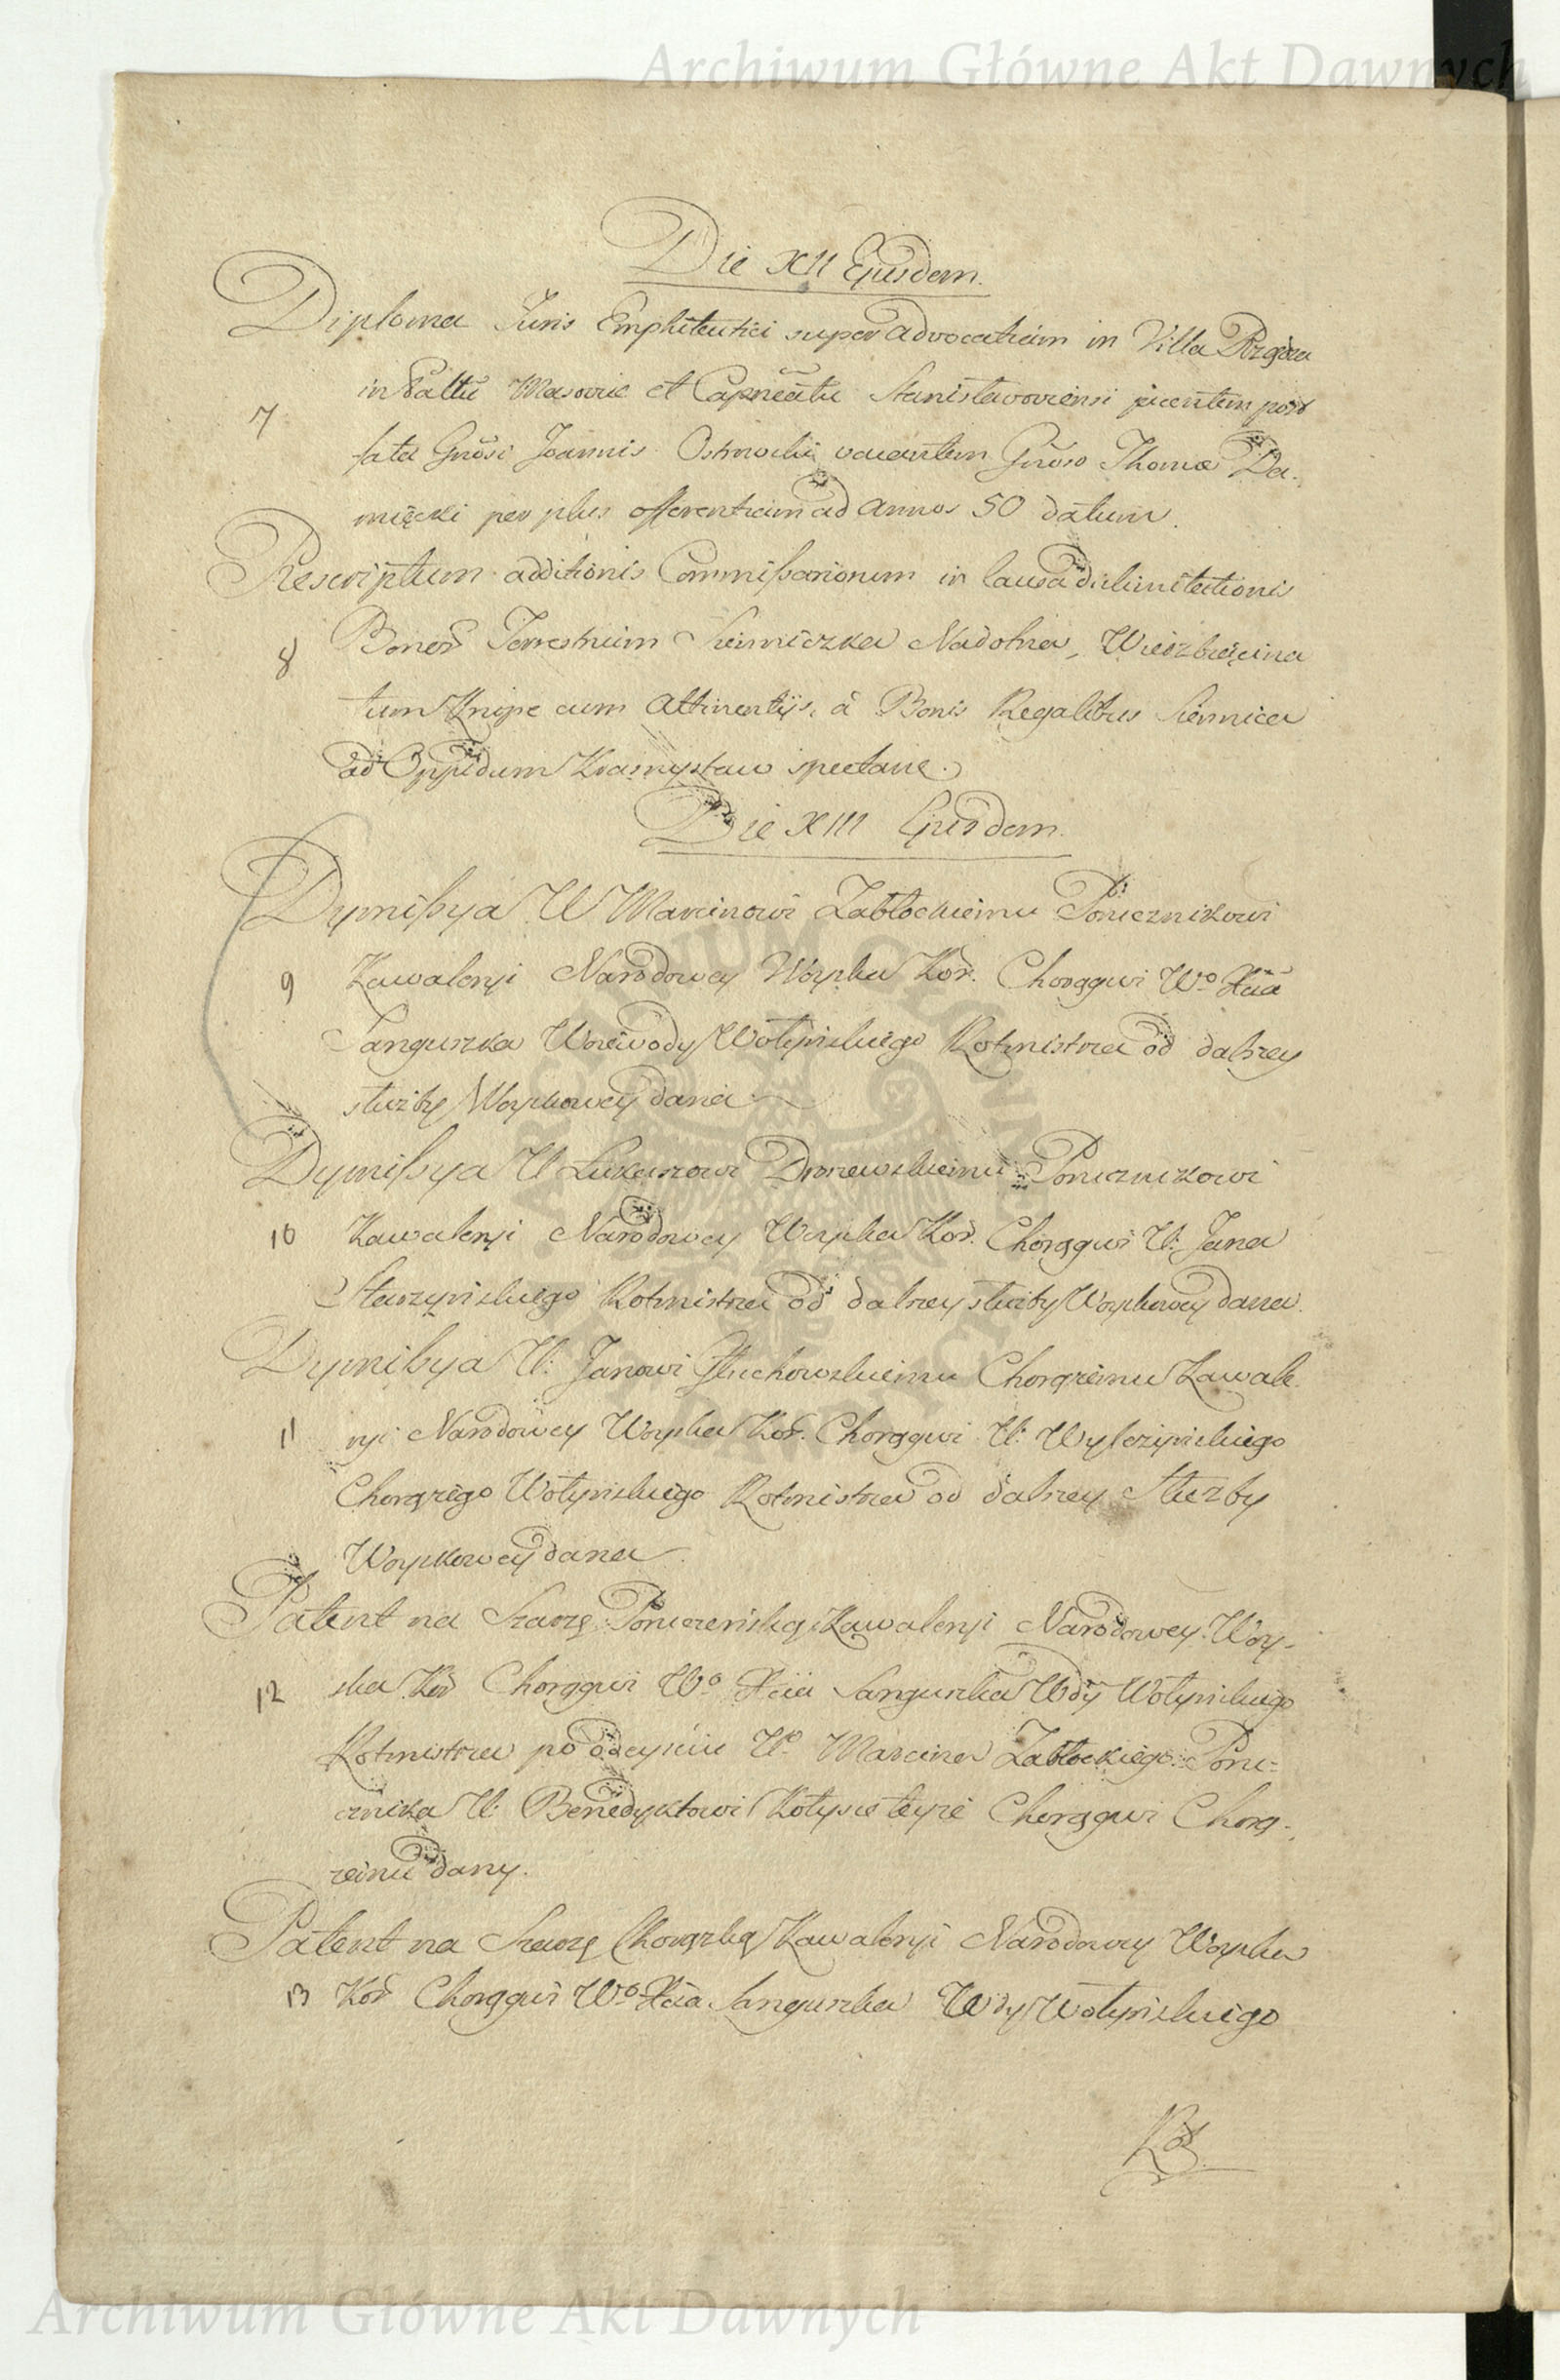 Archiwum Główne Akt Dawnych
Die XII Ejusdem.
Diploma Juris Emphiteutici super advocatiam in Villa
in Pallũ Masoviæ et Capneatu Stanisławoviensi jacentem post
7
fata Gnosi Joannis vacantem Gnoso Thomæ Da-
mięcki per plus offerentiam ad annos 50 datum.
Rescriptum additionis Commissariorum in causa dislimitationis
8 Bonor Terrestrium Sienniczka Nadolna, Wierzbięcina
tum Knipe cum attinentijs, à Bonis Regalibus Siennica
ad Oppidum Krasnystaw spectane.
Die XIII Ejusdem.
Dymissya W Marcinowi Zabłockiemu Porucznikowi
9 Kawaleryi Narodowey Woyska Kor. Chorągwi Wo Xcia
Sanguszka Woiewody Wołyńskiego Rotmistrza od dalszey
służby Woyskowey dana
Dymissya W Łukaszowi Porucznikowi
10 Kawaleryi Narodowey Woyska Kor. Chorągwi W: Jana
Starzyńskiego Rotmistrza od dalszey służby Woyskowey dana.
Dymissya W: Janowi Głuchowskiemu Chorążemu Kawale-
11 ryi Narodowey Woyska Kor. Chorągwi W: Wyleżyńskiego
Chorążego Wołyńskiego Rotmistrza od dalszey Służby
Woyskowey dana
Patent na Szarżę Poruczeńską Kawaleryi Narodowey Woy-
12 ska Kor Chorągwi Wo Xcia Sanguszka Wdy Wołyńskiego
Rotmistrza po odeyściu W. Marcina Zabłockiego Poru-
cznika W: Benedyktowi Kołysce teyże Chorągwi Chorą-
żemu dany.
Patent na Szarżę Chorążką Kawaleryi Narodowey Woyska
13 Kor Chorągwi Wo Xcia Sanguszka Wdy Wołyńskiego
Archiwum Główne Akt Dawnych